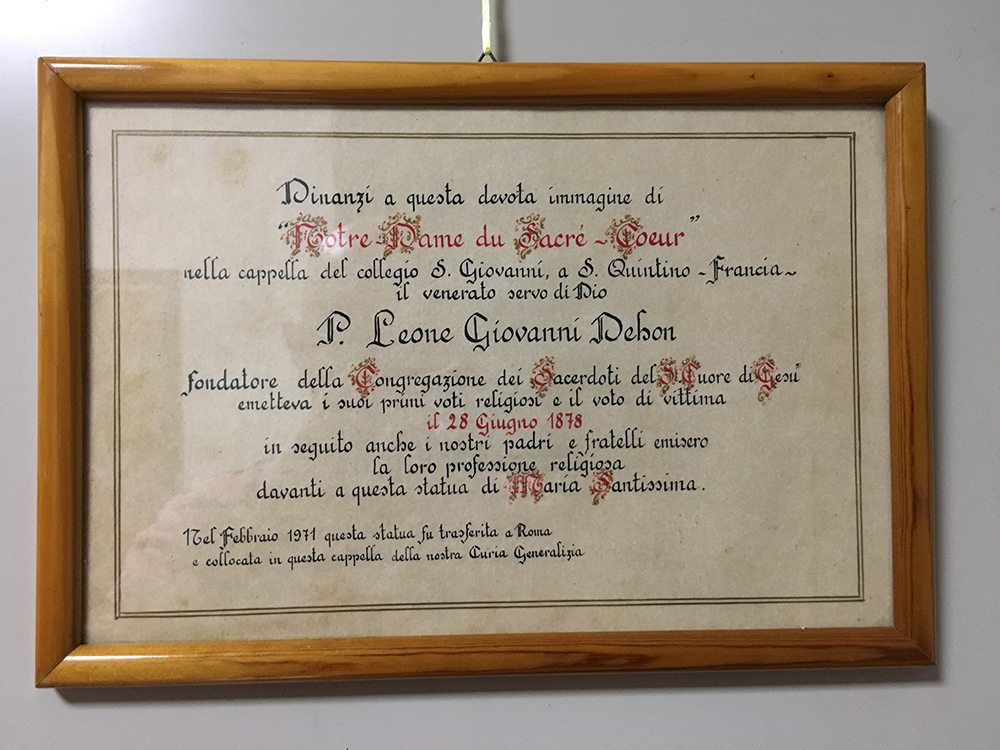 Dinanzi a questa devota immagine di
“Notre-Dame du Sacré-Coeur”
nella cappella del collegio S. Giovanni, a S. Quintino - Francia -
il venerato servo di Dio
P. Leone Giovanni Dehon
fondatore della Congregazione dei Sacerdoti del S. Cuore di Gesù
emetteva i suoi primi voti religiosi e il voto di vittima
il 28 Giugno 1878
in seguito anche i nostri padri e fratelli emisero
la loro professione religiosa
davanti a questa statua di Maria Santissima.
Nel Febbraio 1971 questa statua fu trasferita a Roma
e collocata in questa cappella della nostra Curia Generalizia